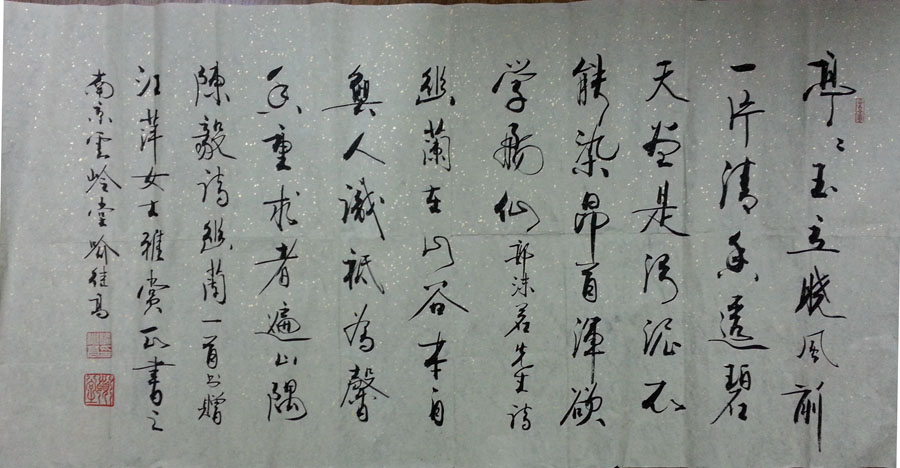 亭々玉立晓风前
一片清香透碧
天尽是污泥不
能染昂首渾欲
学飛仙 郭沫若先生诗
幽蘭在山谷本自
無人識祇為馨
香重求者遍山隅
陳毅诗幽蘭一首书赠
江萍女士雅赏正書之
南京雲岭堂喻继高